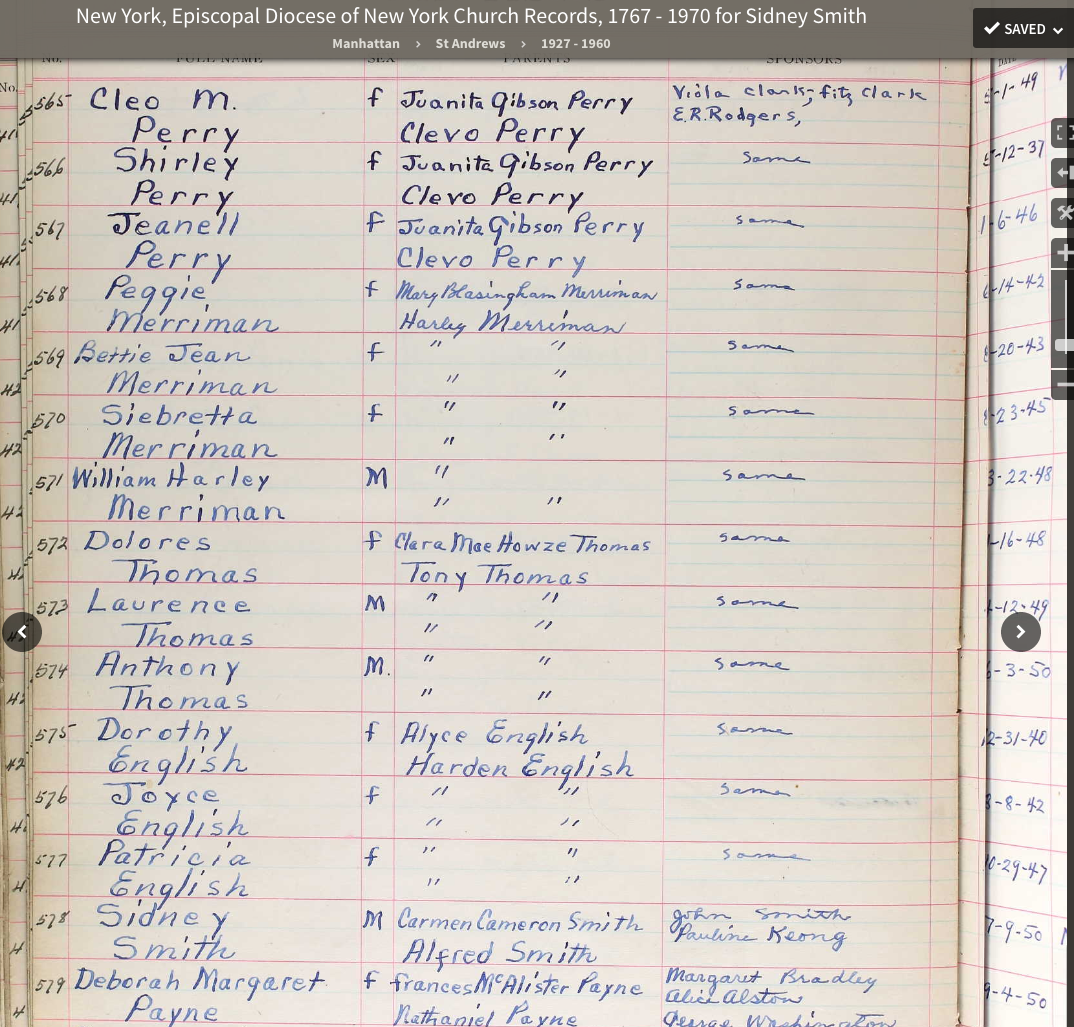 New York, Episcopal Diocese of New York Church Records, 1767 - 1970 for Sidney Smith
Manhattan > St Andrews > 1927 - 1960
SAVED
No. FULL NAME SEX PARENTS SPONSORS
565 Cleo M. f Juanita Gibson Perry Viola Clark; fitz Clark 5-1-49
Perry Clevo Perry E.R. Rodgers,
566 Shirley f Juanita Gibson Perry Same -12-37
Perry Clevo Perry
567 Jeanell f Juanita Gibson Perry same 1-6-46
Perry Clevo Perry
568 Peggie f Mary Blasingham Merriman same 6-14-42
Merriman Harley Merriman
569 Bettie Jean f " " same -20-43
Merriman " "
570 Siebretta f " " same -23-45
Merriman " "
571 William Harley M " same 3-22-48
Merriman " "
572 Dolores f Clara Mae Howze Thomas same -16-48
Thomas Tony Thomas
573 Laurence M " " same -12-49
Thomas " "
574 Anthony M. " " same -3-50
Thomas " "
575 Dorothy f Alyce English same 2-31-40
English Harden English
576 Joyce f " " same -8-42
English " "
577 Patricia f " " same 0-29-47
English " "
578 Sidney M Carmen Cameron Smith John Smith 7-9-50
Smith Alfred Smith Pauline Keong
579 Deborah Margaret f frances McAlister Payne Margaret Bradley 9-4-50
Payne Nathaniel Payne Alice Alston
George Washington